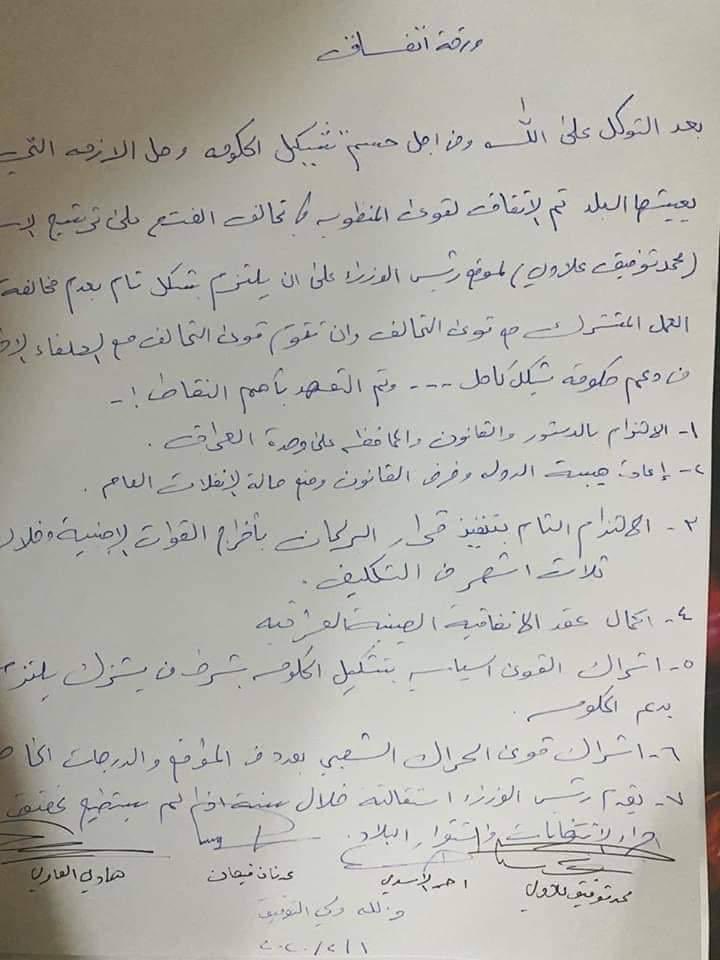 ورقة اتفاق
بعد التوكل على الله ومن اجل حسم تشكيل الحكومه وحل الازمه التي
يعيشها البلد تم الاتفاق لقوى المنطويه في تحالف الفتح على ترشيح
(محمد توفيق علاوي) لموقع رئيس الوزراء على ان يلتزم بشكل تام بعدم مخالفة
العمل المشترك مع قوى التحالف وان تقوم قوى التحالف مع الحلفاء
من دعم حكومة بشكل كامل --- وتم التعهد بأهم النقاط :-
١- الالتزام بالدستور والقانون والمحافظه على وحدة العراق .
٢- إعادة هيبة الدوله وفرض القانون ومنع حالة الانفلات العام .
٣- الالتزام التام بتنفيذ قرار البرلمان بأخراج القوات الاجنبية وخلال
ثلاث اشهر من التكليف .
٤- اكمال عقد الاتفاقية الصينية العراقيه
٥- اشراك القوى السياسيه بتشكيل الحكومه بشرط من يشترك يلتزم
بدعم الحكومه .
٦- اشراك قوى الحراك الشعبي بعدد من المواقع والدرجات
٧- يقدم رئيس الوزراء استقالته خلال سنة اذا لم يستطيع تحقيق
اجراء الانتخابات واستقرار البلاد .
محمد توفيق علاوي احمد الاسدي عدنان فيحان هادي العامري
والله ولي التوفيق
٢٠٢٠/٢/١